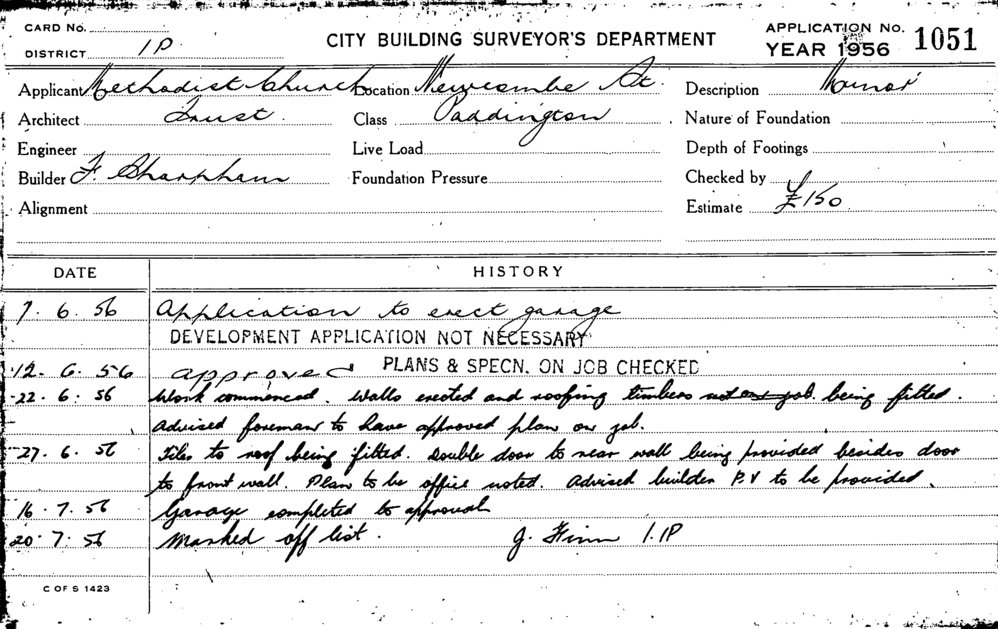 CARD No.
DISTRICT 1P
CITY BUILDING SURVEYOR'S DEPARTMENT
APPLICATION No.
YEAR 1956 1051
Applicant Methodist Church Location Newcombe St. Description Minor
Architect Trust. Class Paddington Nature of Foundation
Engineer Live Load Depth of Footings
Builder F. Sharpham Foundation Pressure Checked by
Alignment Estimate £150
DATE HISTORY
7. 6. 56 Application to erect garage
DEVELOPMENT APPLICATION NOT NECESSARY
12. 6. 56 approved PLANS & SPECN. ON JOB CHECKED
22. 6. 56 Work commenced. Walls erected and roofing timbers not on job. being fitted.
Advised foreman to have approved plan on job.
27. 6. 56 Tiles to roof being fitted. Double door to rear wall being provided besides door
to front wall. Plan to be office noted. Advised builder P.V to be provided.
16. 7. 56 Garage completed to approval
20. 7. 56 Marked off list. J. Finn 1.1P
C OF S 1423